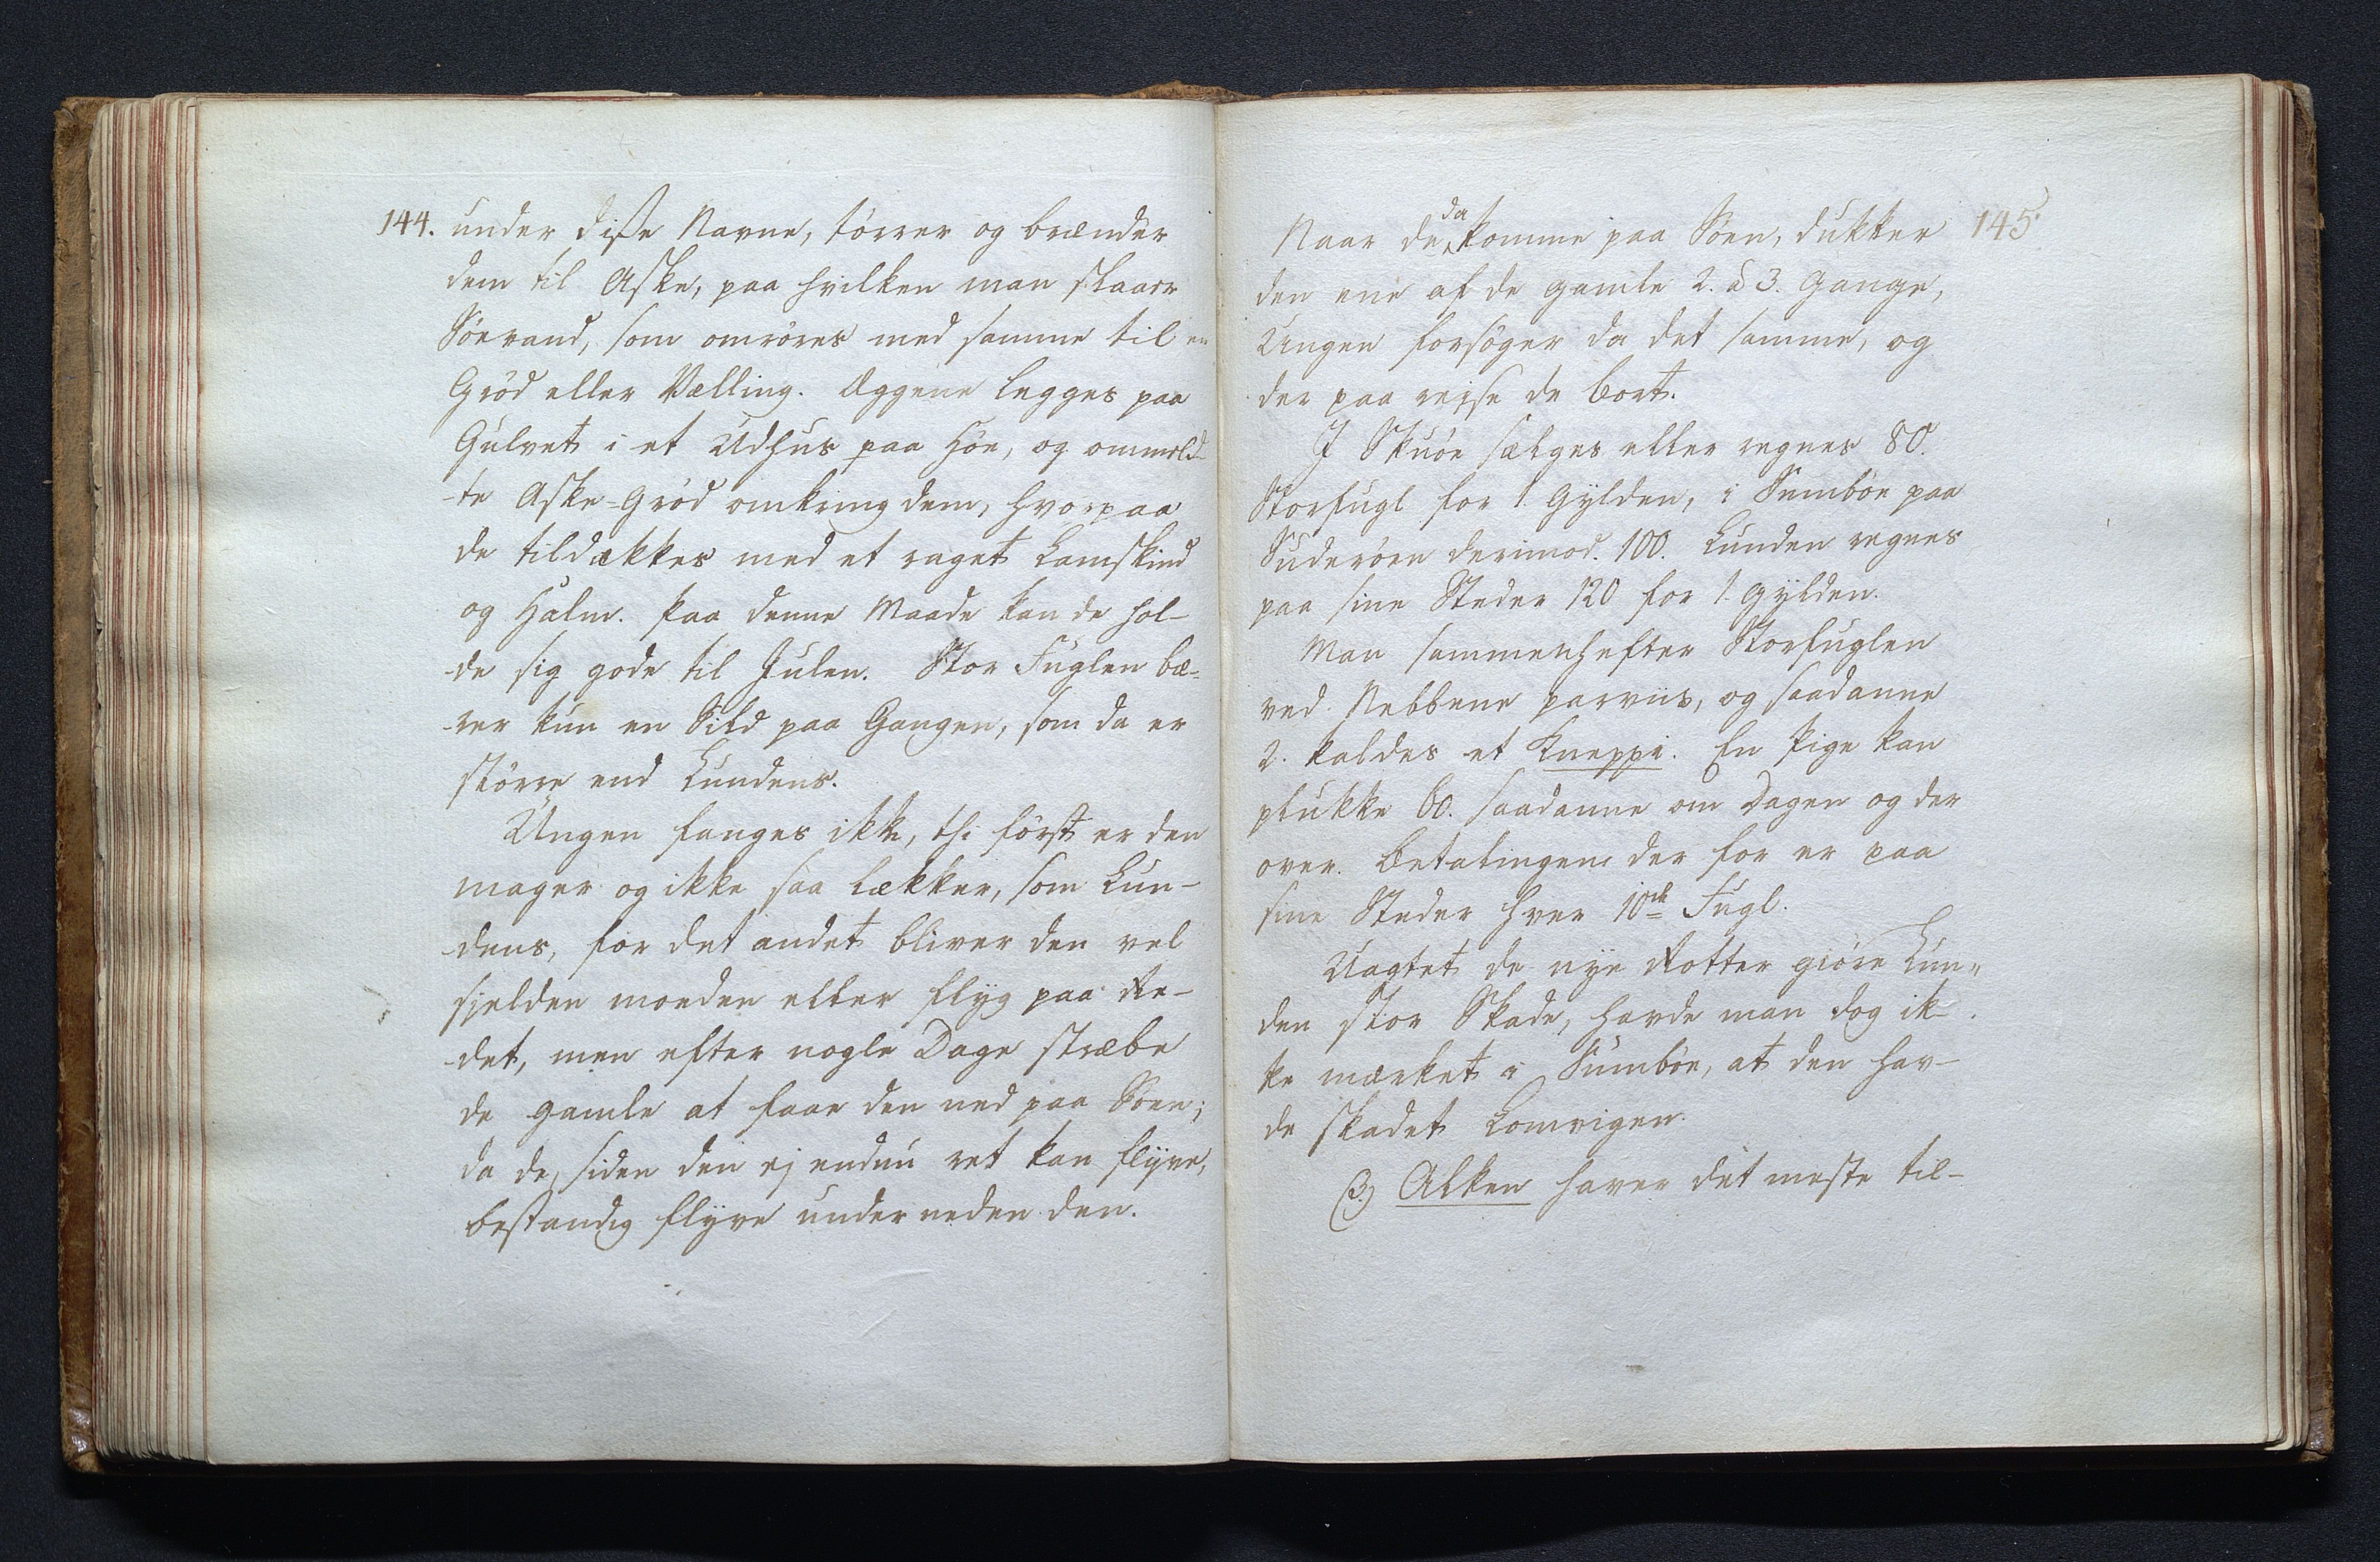 144. under disse Navne, tørrer og brænder
dem til Aske, paa hvilken man slaaer
Søevand, som omrøres med samme til en
Grød eller Vælling. Æggene legges paa
Gulvet i et Udhus paa Høe, og ommeld-
-te Aske-Grød omkring dem, hvorpaa
de tildækkes med et raget Lamskind
og Halm. Paa denne Maade kan de hol-
-de sig gode til Julen. Stor Fuglen bæ-
-rer kun en Sild paa Gangen, som da er
større end Lundens.
Ungen fanges ikke, thi først er den
mager og ikke saa lækker, som Lun-
-dens, for det andet bliver den vel
sjelden moeden eller flyg paa Re-
-det, men efter nogle Dage stræbe
de gamle at faae den ned paa Søen;
da de, siden den ej endnu ret kan flyve,
bestandig flyve under neden den.
145
Naar de da komme paa Søen, dukker
den ene af de gamle 2. à 3. Gange,
Ungen forsøger da det samme, og
der paa reise de bort.
I Skuøe sælges eller regnes 80.
Storfugl for 1. Gylden, i Sumbøe paa
Suderøen derimod. 100. Lunden regnes
paa sine Steder 120 for 1. Gylden.
Man sammenhefter Storfuglen
ved Nebbene parviis, og saadanne
2. kaldes et Kneppi. En Pige kan
plukke 60. saadanne om Dagen og der
over. Betalingen der for er paa
sine Steder hver 10de Fugl.
Uagtet de nye Rotter giøre Lun„
den stor Skade, havde man dog ik-
ke mærket i Sumbøe, at den hav-
de skadet Lomvigen.
3) Alken haver det meste til-